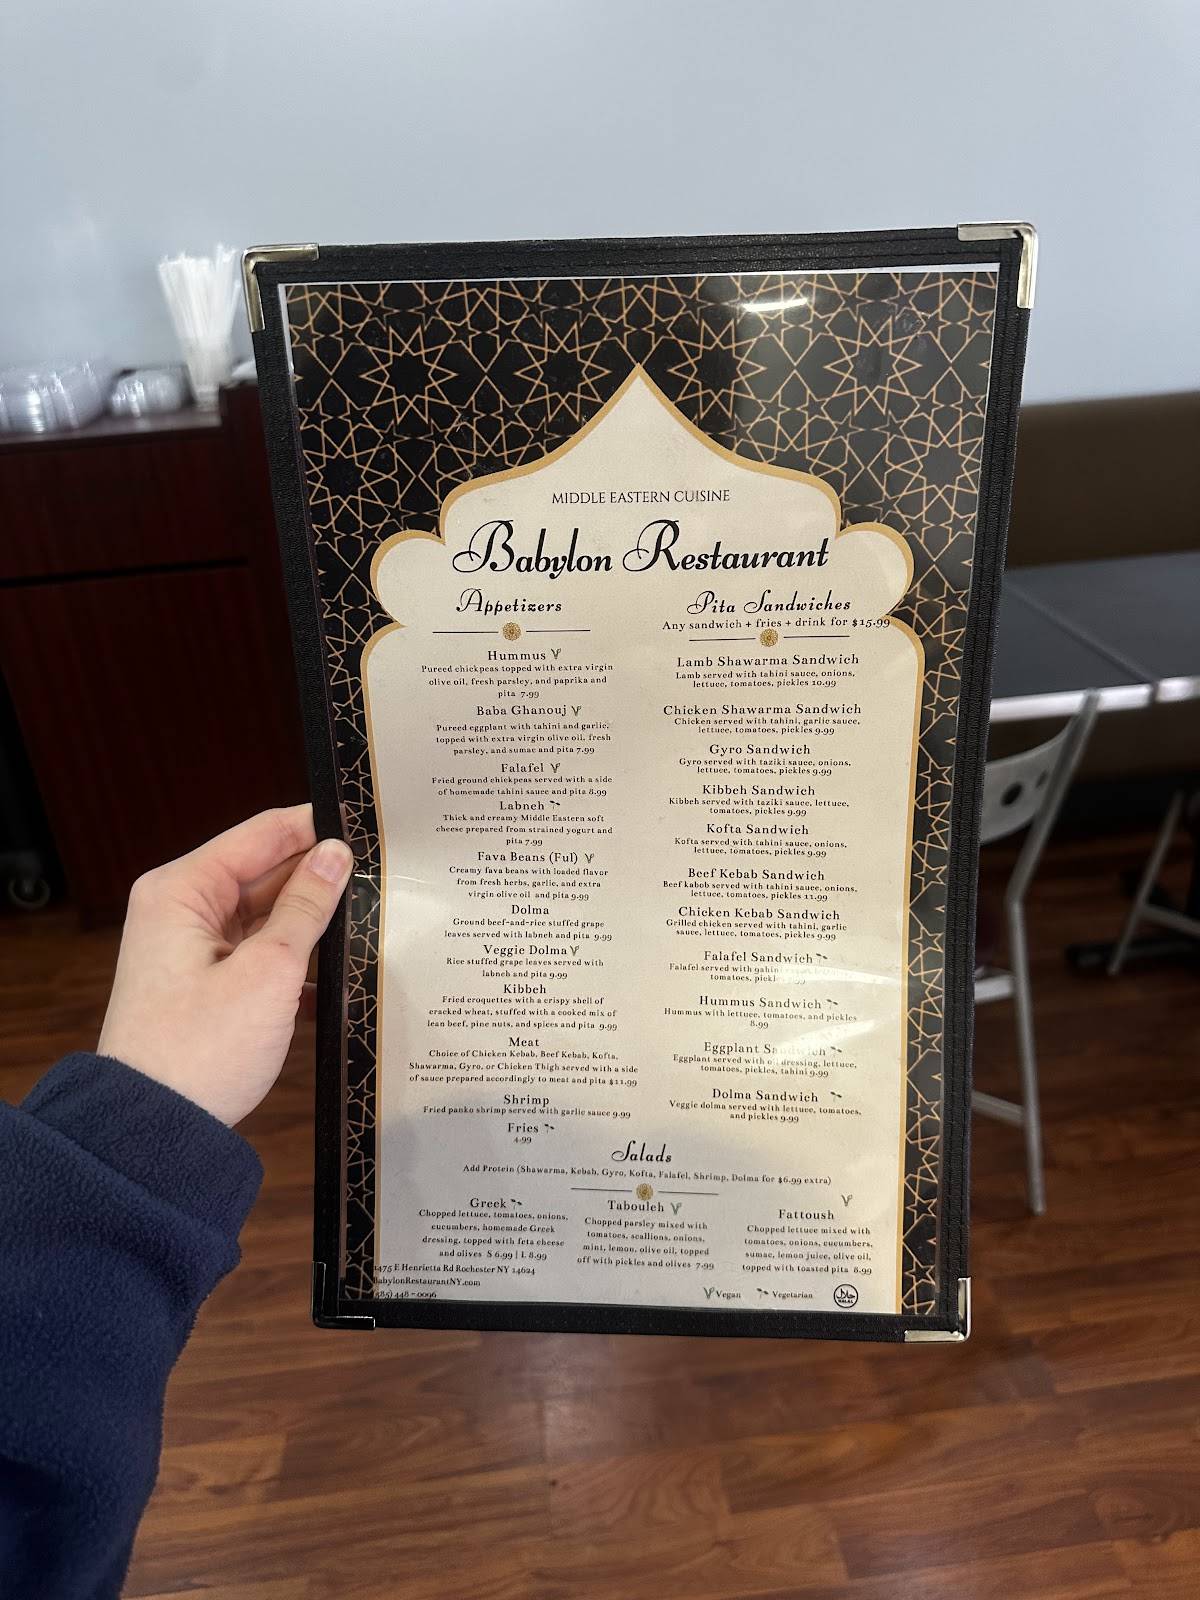 MIDDLE EASTERN CUISINE
Babylon Restaurant
Appetizers
Hummus
Pureed chickpeas topped with extra virgin
olive oil, fresh parsley, and paprika and
pita 7.99
Baba Ghanouj
Pureed eggplant with tahini and garlic,
topped with extra virgin olive oil, fresh
parsley, and sumac and pita 7.99
Falafel
Fried ground chickpeas served with a side
of homemade tahini sauce and pita 8.99
Labneh
Thick and creamy Middle Eastern soft
cheese prepared from strained yogurt and
pita 7.99
Fava Beans (Ful)
Creamy fava beans with loaded flavor
from fresh herbs, garlic, and extra
virgin olive oil and pita 9.99
Dolma
Ground beef-and-rice stuffed grape
leaves served with labneh and pita 9.99
Veggie Dolma
Rice stuffed grape leaves served with
labneh and pita 9.99
Kibbeh
Fried croquettes with a crispy shell of
cracked wheat, stuffed with a cooked mix of
lean beef, pine nuts, and spices and pita 9.99
Meat
Choice of Chicken Kebab, Beef Kebab, Kofta,
Shawarma, Gyro, or Chicken Thigh served with a side
of sauce prepared accordingly to meat and pita $11.99
Shrimp
Fried panko shrimp served with garlic sauce 9.99
Fries
4.99
Pita Sandwiches
Any sandwich + fries + drink for $15.99
Lamb Shawarma Sandwich
Lamb served with tahini sauce, onions,
lettuce, tomatoes, pickles 10.99
Chicken Shawarma Sandwich
Chicken served with tahini, garlic sauce,
lettuce, tomatoes, pickles 9.99
Gyro Sandwich
Gyro served with taziki sauce, onions,
lettuce, tomatoes, pickles 9.99
Kibbeh Sandwich
Kibbeh served with taziki sauce, lettuce,
tomatoes, pickles 9.99
Kofta Sandwich
Kofta served with tahini sauce, onions,
lettuce, tomatoes, pickles 9.99
Beef Kebab Sandwich
Beef kabob served with tahini sauce, onions,
lettuce, tomatoes, pickles 11.99
Chicken Kebab Sandwich
Grilled chicken served with tahini, garlic
sauce, lettuce, tomatoes, pickles 9.99
Falafel Sandwich
Falafel served with
tomatoes,
Hummus Sandwich
Hummus with lettuce, tomatoes, and pickles
8.99
Eggplant Sandwich
Eggplant served with oil dressing, lettuce,
tomatoes, pickles, tahini 9.99
Dolma Sandwich
Veggie dolma served with lettuce, tomatoes,
and pickles 9.99
Salads
Add Protein (Shawarma, Kebab, Gyro, Kofta, Falafel, Shrimp, Dolma for $6.99 extra)
Greek
Chopped lettuce, tomatoes, onions,
cucumbers, homemade Greek
dressing, topped with feta cheese
and olives S 6.99 | L 8.99
Tabouleh
Chopped parsley mixed with
tomatoes, scallions, onions,
mint, lemon, olive oil, topped
off with pickles and olives 7.99
Fattoush
Chopped lettuce mixed with
tomatoes, onions, cucumbers,
sumac, lemon juice, olive oil,
topped with toasted pita 8.99
1475 E Henrietta Rd Rochester NY 14624
BabylonRestaurantNY.com
(585) 448 - 0096
Vegan
Vegetarian
حلال
HALAL